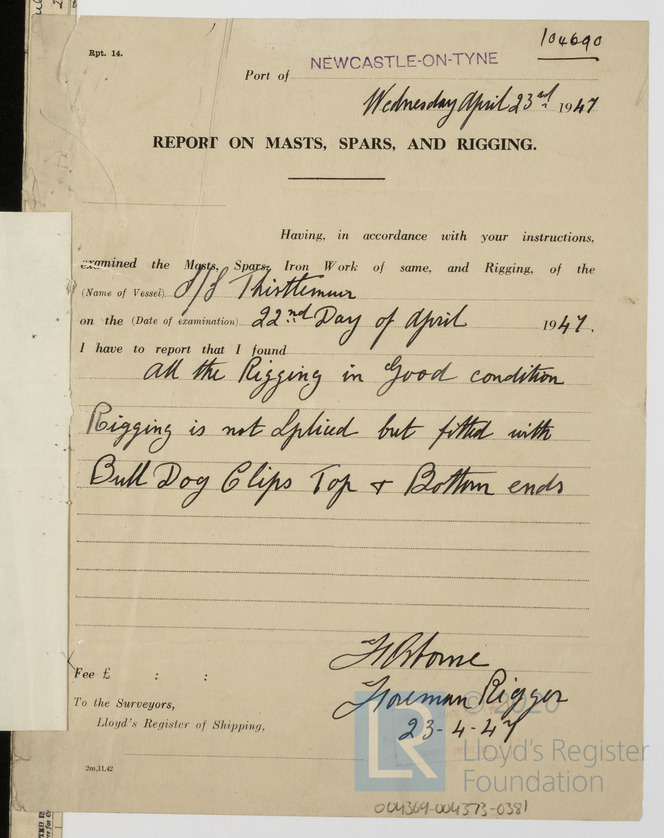 104690
Rpt. 14.
Port of NEWCASTLE-ON-TYNE
Wednesday April 23rd 1947
REPORT ON MASTS, SPARS, AND RIGGING.
Having, in accordance with your instructions,
examined the Masts, Spars, Iron Work of same, and Rigging, of the
(Name of Vessel) S/S Thistlemuir
on the (Date of examination) 22nd Day of April 1947.
I have to report that I found
all the Rigging in Good condition
Rigging is not Spliced but fitted with
Bull Dog Clips Top & Bottom ends
Fee £ : :
To the Surveyors,
Lloyd's Register of Shipping,
Foreman Rigger
23-4-47
2m,11,42
© 2020
LR
Lloyd's Register
Foundation
004369-004373-0381